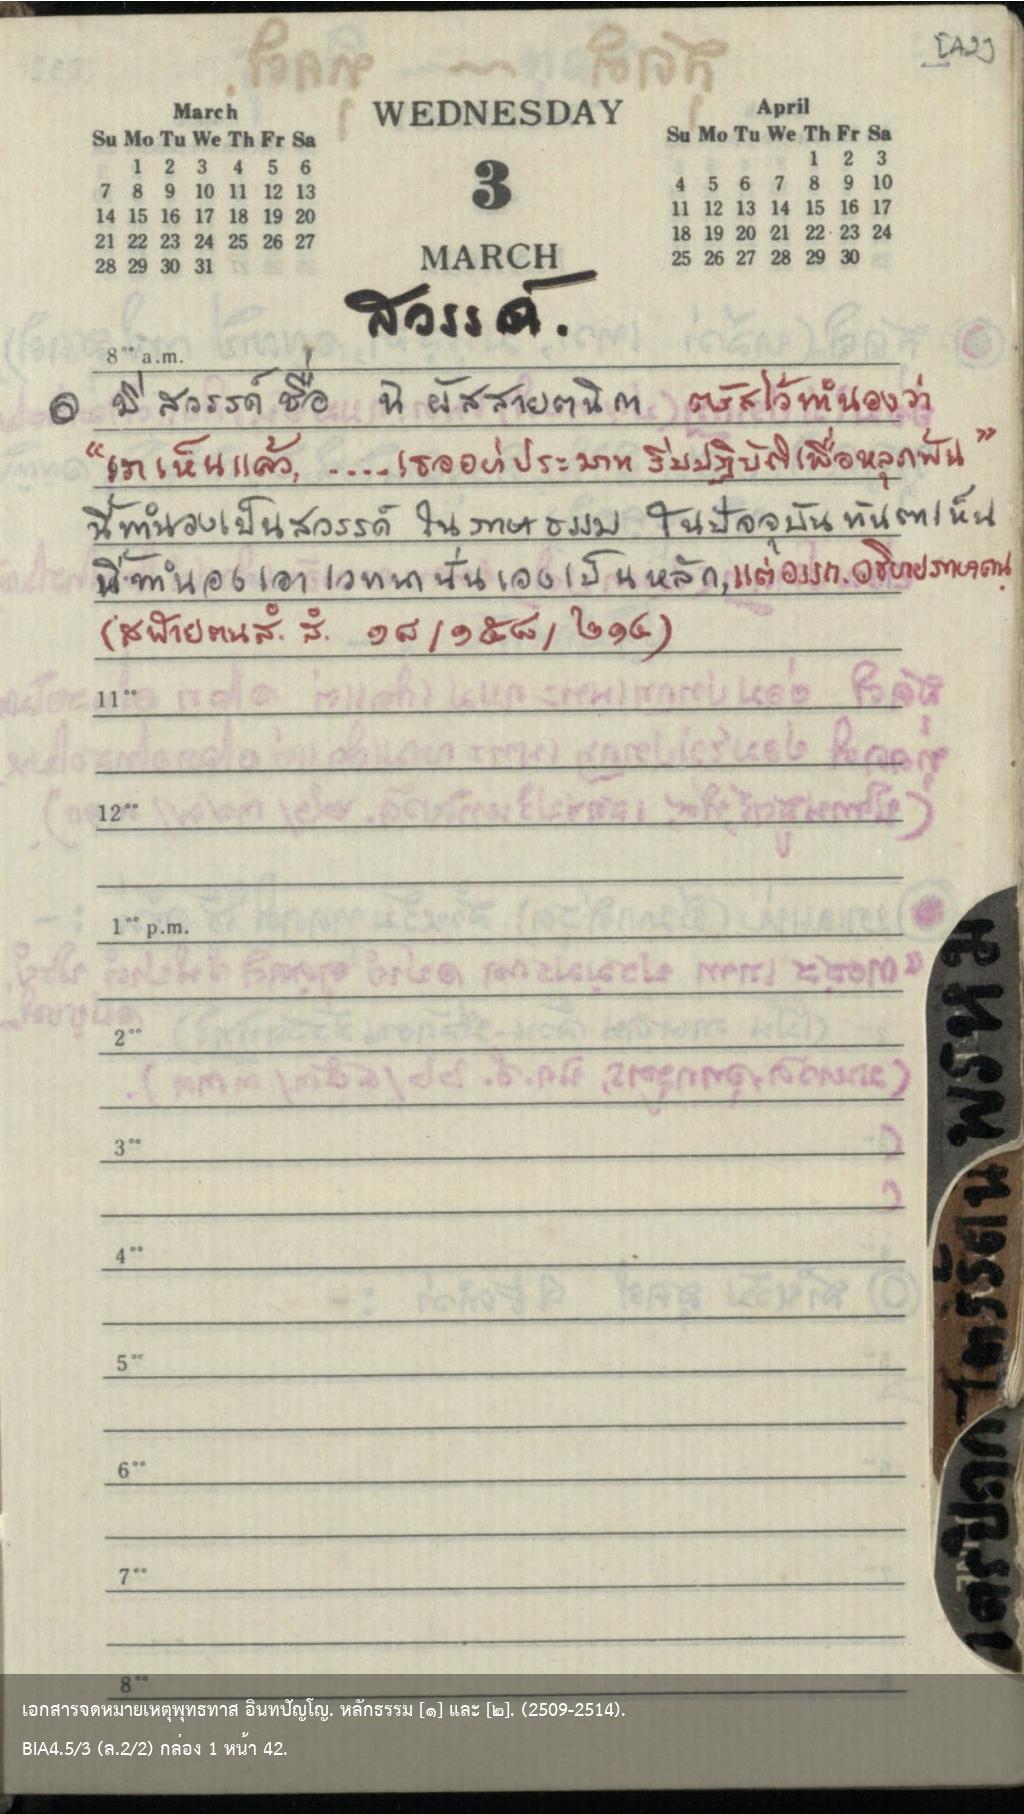 [A2]
March
Su Mo Tu We Th Fr Sa
1 2 3 4 5 6
7 8 9 10 11 12 13
14 15 16 17 18 19 20
21 22 23 24 25 26 27
28 29 30 31
WEDNESDAY
3
MARCH
April
Su Mo Tu We Th Fr Sa
1 2 3
4 5 6 7 8 9 10
11 12 13 14 15 16 17
18 19 20 21 22 23 24
25 26 27 28 29 30
สวรรค์.
8°° a.m.
มีสวรรค์ ชื่อ ฉ ผัสสายตนิกา ตรัสไว้ทำนองว่า
"เราเห็นแล้ว, .....เธออย่าประมาท รีบปฏิบัติเพื่อหลุดพ้น"
นี้ทำนองเป็นสวรรค์ ในภาษาธรรม ในปัจจุบันทันตาเห็น
นี้ทำนองเอาเวทนานั่นเองเป็นหลัก, แต่อรรถ. อธิบายภาษาคน.
(สฬายตนสํ. สํ. ๑๘/๑๕๘/๒๑๔)
11°°
12°°
1°° p.m.
2°°
3°°
4°°
5°°
6°°
7°°
8°°
พรหม
ไตรรัตน
ไตรปิฎก
เอกสารจดหมายเหตุพุทธทาส อินทปัญโญ. หลักธรรม [๑] และ [๒]. (2509-2514).
BIA4.5/3 (ล.2/2) กล่อง 1 หน้า 42.